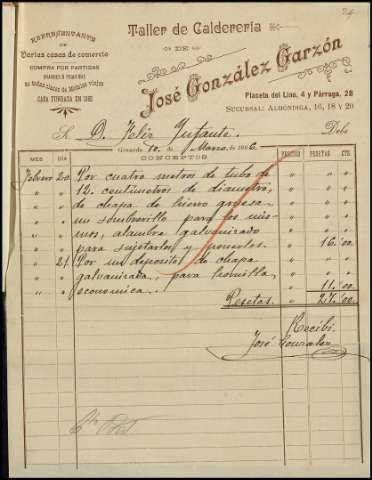 24
REPRESENTANTE
DE
Varias casas de comercio
COMPRA POR PARTIDAS
GRANDES Y PEQUEÑAS
de todas clases de Metales viejos
CASA FUNDADA EN
Taller de Calderería
DE
José González Garzón
Placeta del Lino, 4 y Párraga, 28
SUCURSAL: ALHÓNDIGA, 16, 18 Y 20
S. D. Felix Infante. Debe
Granada 10 de Marzo de 1906.
MES DÍA CONCEPTOS PRECIO PESETAS CTS.
Febrero 20 Por cuatro metros de tubo de
" " 12 centímetros de diametro,
" " de chapa de hierro gruesa
" " un sombrerillo para los mis-
" " mos, alambre galvanizado
" " para sujetarlos y ponerlos. 16 '00
" 21 Por un deposito de chapa
" " galvanizada para hornilla
" " economica. 11 '00
Pesetas 27 '00
Recibí
José Gonzalez